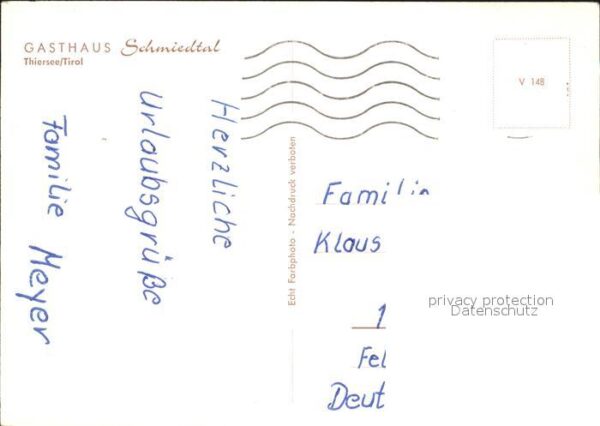 GASTHAUS Schmiedtal
Thiersee/Tirol
Herzliche
Urlaubsgrüße
Familie Meyer
Echt Farbphoto - Nachdruck verboten
V 148
Familie
Klaus
1
Fel
Deut
privacy protection
Datenschutz